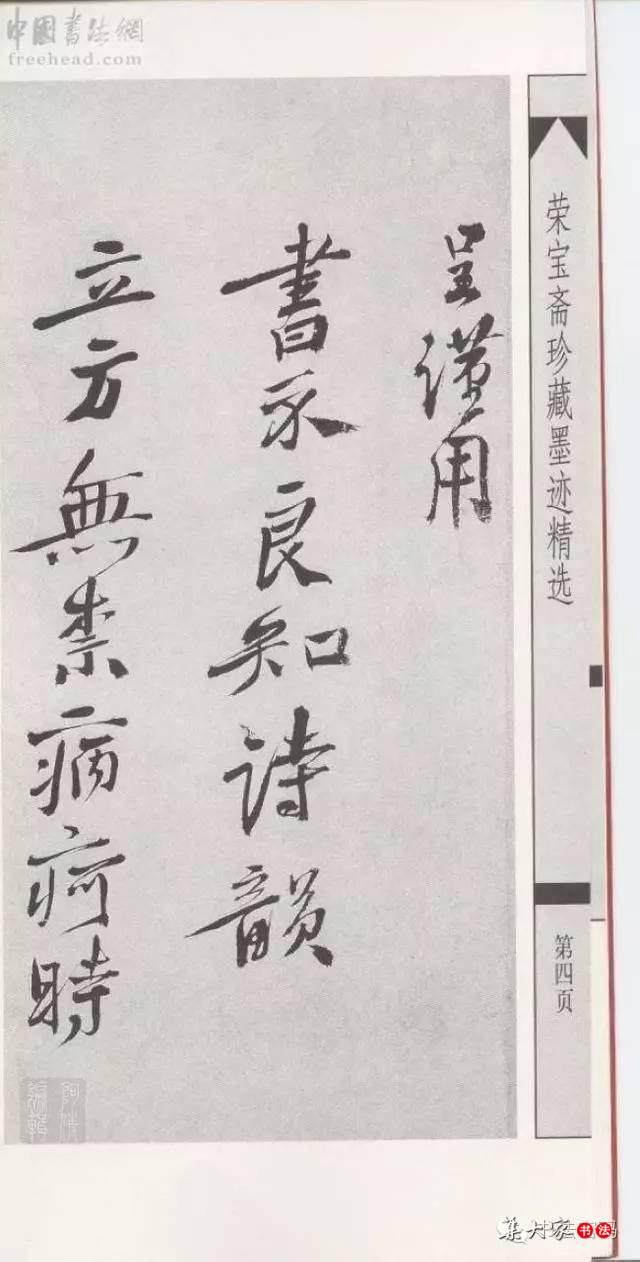 中國書法網
freehead.com
荣宝斋珍藏墨迹精选
第四页
呈謹用
書示良知詩韻
立方無柰病疴時
集大家 书法